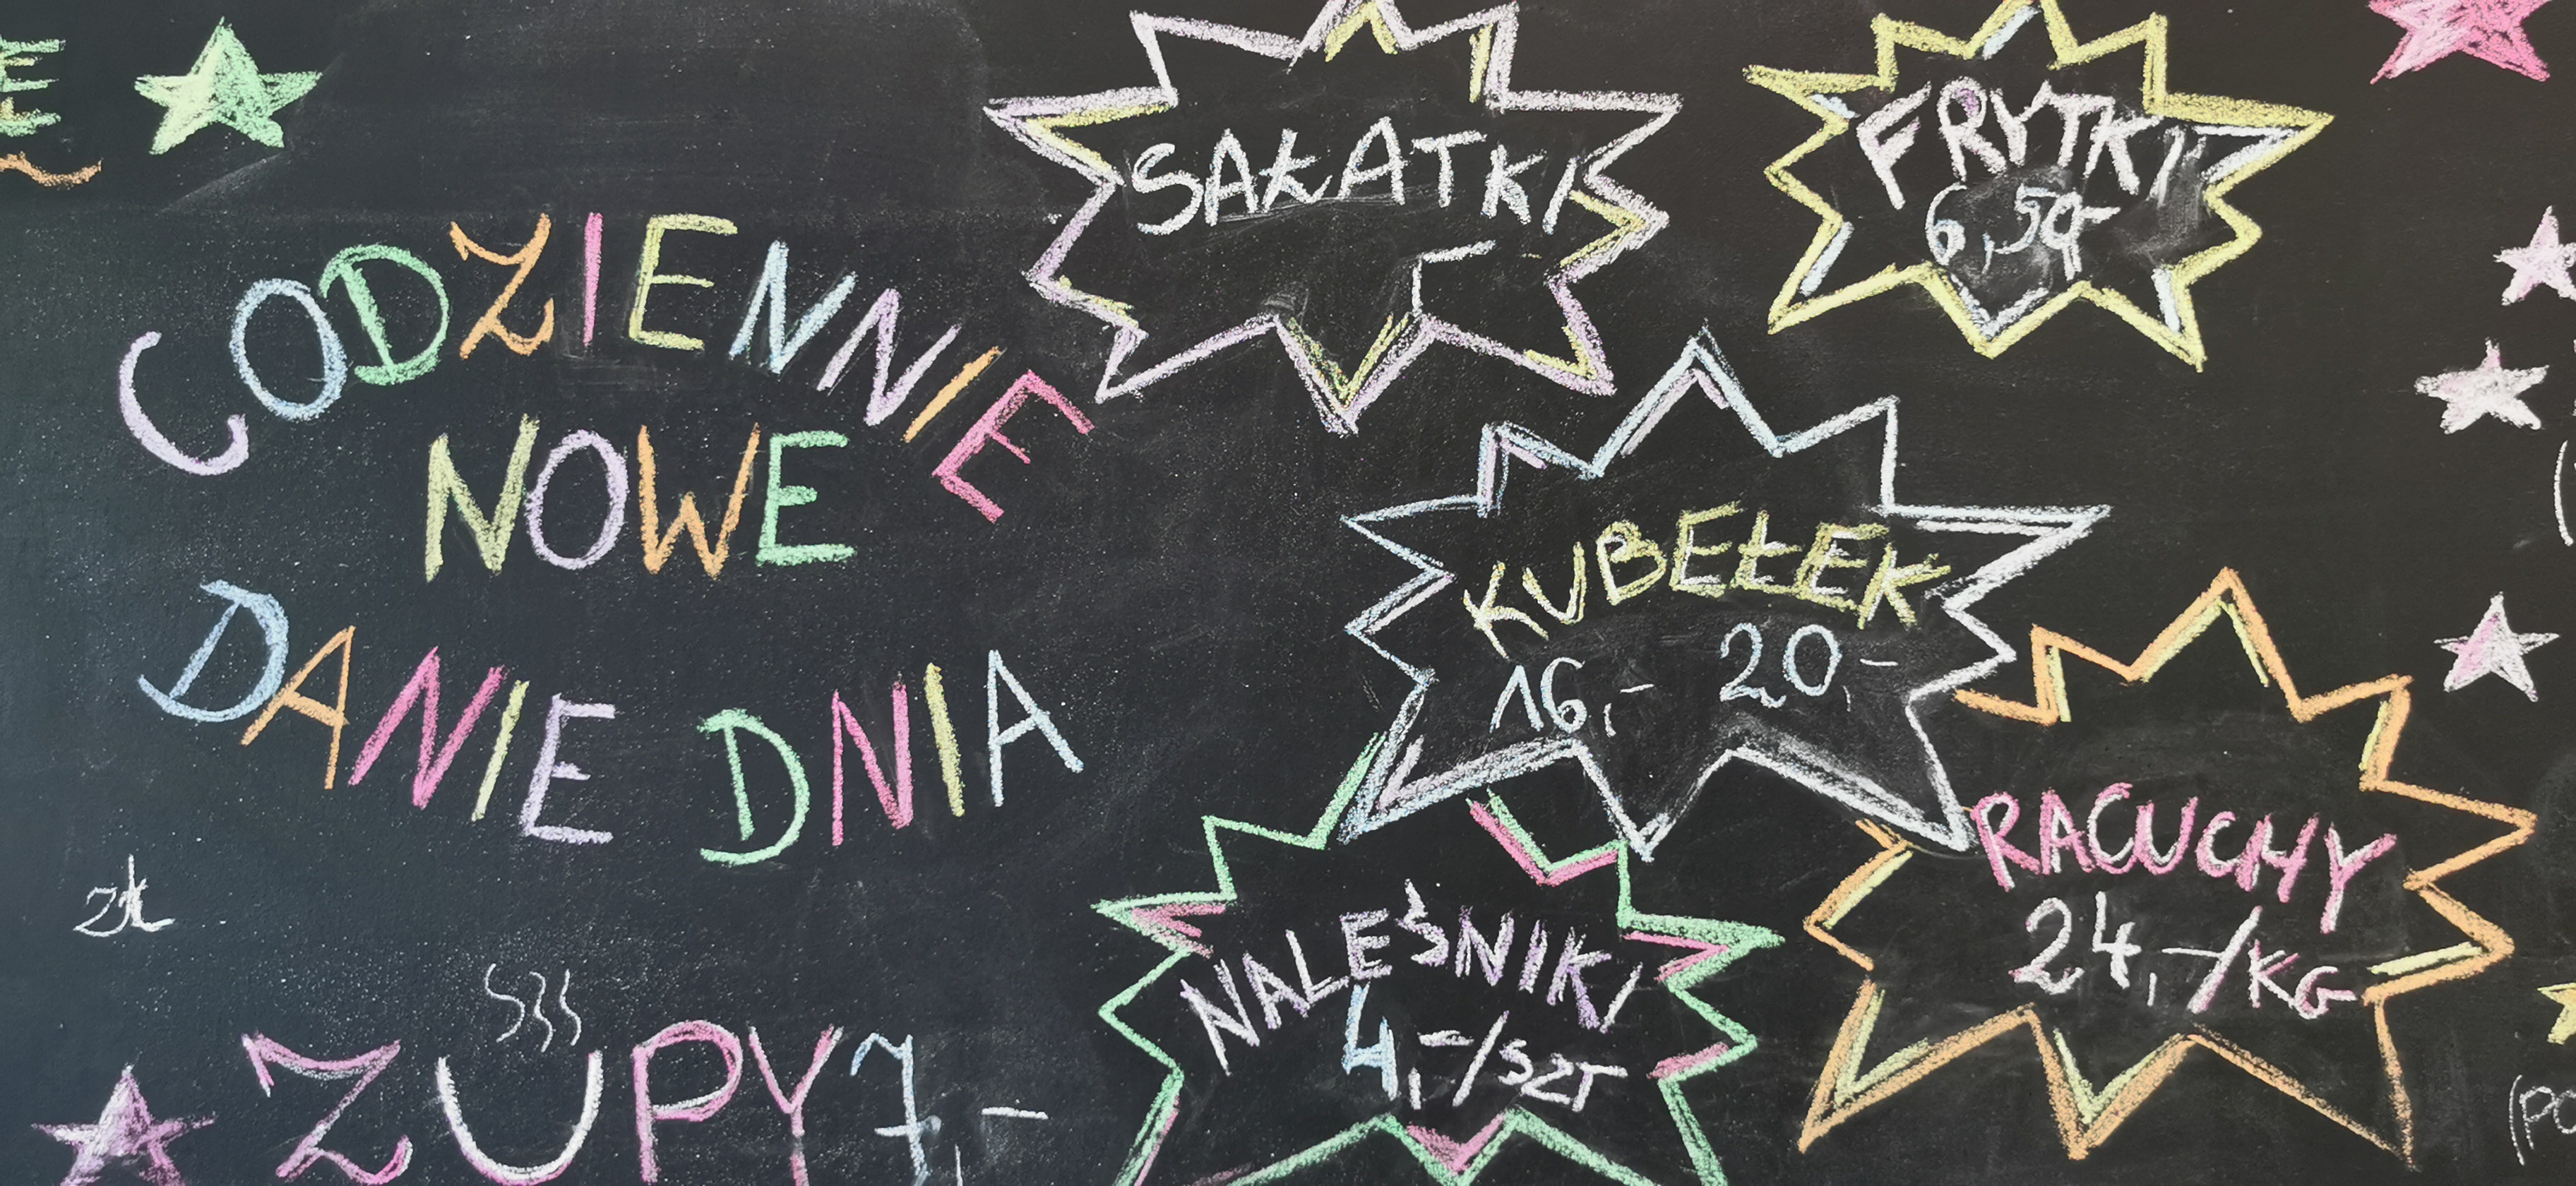 CODZIENNIE
NOWE
DANIE DNIA
zł
ZUPY 7,-
SAŁATKI
FRYTKI
6,50
KUBEŁEK
16,- 20,-
NALEŚNIKI
4,-/SZT
RACUCHY
24,-/KG